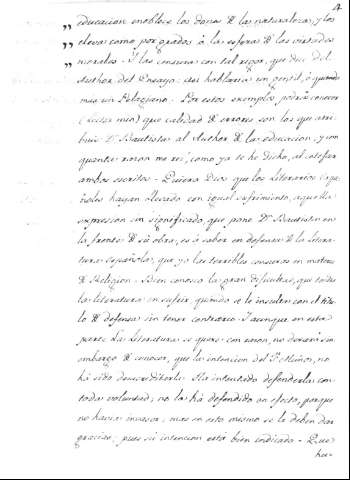 4
„ educacion enoblece los dones de la naturaleza, y los
„ eleva como por grados à la esfera de las virtudes
„ morales. Y las censura con tal rigor, que dice del
Author del Ensayo: asi hablaria un gentil, ò quando
mas un Pelagiano. Por estos exemplos podràs conocer
(Lector mio) que calidad de errores son los que atri-
buie Dn Bautista al Author de la educacion, y con
quanta razon me rei, como ya te he dicho, al cotejar
ambos escritos. Quiera Dios que los Literarios Espa-
ñoles hayan llevado con igual sufrimiento, aquella
expresion sin significado, que pone Dn Bautista en
la frente de su obra, es à saber en defensa de la litera-
tura española, que yo las terribles censuras en materia
de Religion. Bien conosco la gran dificultad, que todos
la literatura en sufrir, quando se le insulta con el titu-
lo de defensa sin tener contrario. Y aunque en esta
parte la Literatura se queje con razon, no dexarà sin
embargo de conocer, que la intencion del no
hà sido desacreditarla. Ha intentado defenderla con
toda voluntad, no la hà defendido en efecto, porque
no havia invasor; mas en esto mismo se le deben dar
gracias; pues su intencion està bien indicada. Que
hu-